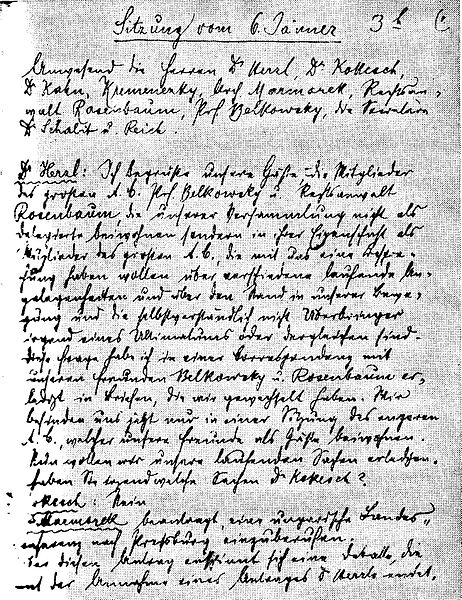 Sitzung vom 6. Jänner 3 h
Anwesend die Herren Dr Herzl, Dr Kokesch,
Dr Kahn, Kremenezky, Arch Marmorek, Rechtsan-
walt Rosenbaum, Prof Belkowsky, die Secretäre
Dr Schalit u. Reich.
Dr Herzl: Ich begrüsse unsere Gäste die Mitglieder
des grossen A. C. Prof Belkowsky u. Rechtsanwalt
Rosenbaum, die unserer Versammlung nicht als
Delegierte beiwohnen sondern in ihrer Eigenschaft als
Mitglieder des grossen A. C., die mit uns eine Bespre-
chung haben wollen über verschiedene laufende An-
gelegenheiten und über den Stand in unserer Bewe-
gung und die selbstverständlich nicht Überbringer
irgend eines Ultimatums oder dergleichen sind.
Diese Frage habe ich in einer Correspondenz mit
unseren Freunden Belkowsky u. Rosenbaum er-
ledigt in Briefen, die wir gewechselt haben. Wir
befinden uns jetzt nur in einer Sitzung des engeren
A. C., welcher unsere Freunde als Gäste beiwohnen.
Nun wollen wir unsere laufenden Sachen erledigen.
Haben Sie irgendwelche Sachen Dr Kokesch?
okesch: Nein
Marmorek beantragt, eine ungarische Landes-
nach Pressburg einzuberufen.
diesen Antrag entspinnt sich eine Debatte, die
mit der Annahme eines Antrages Dr Herzls endet.